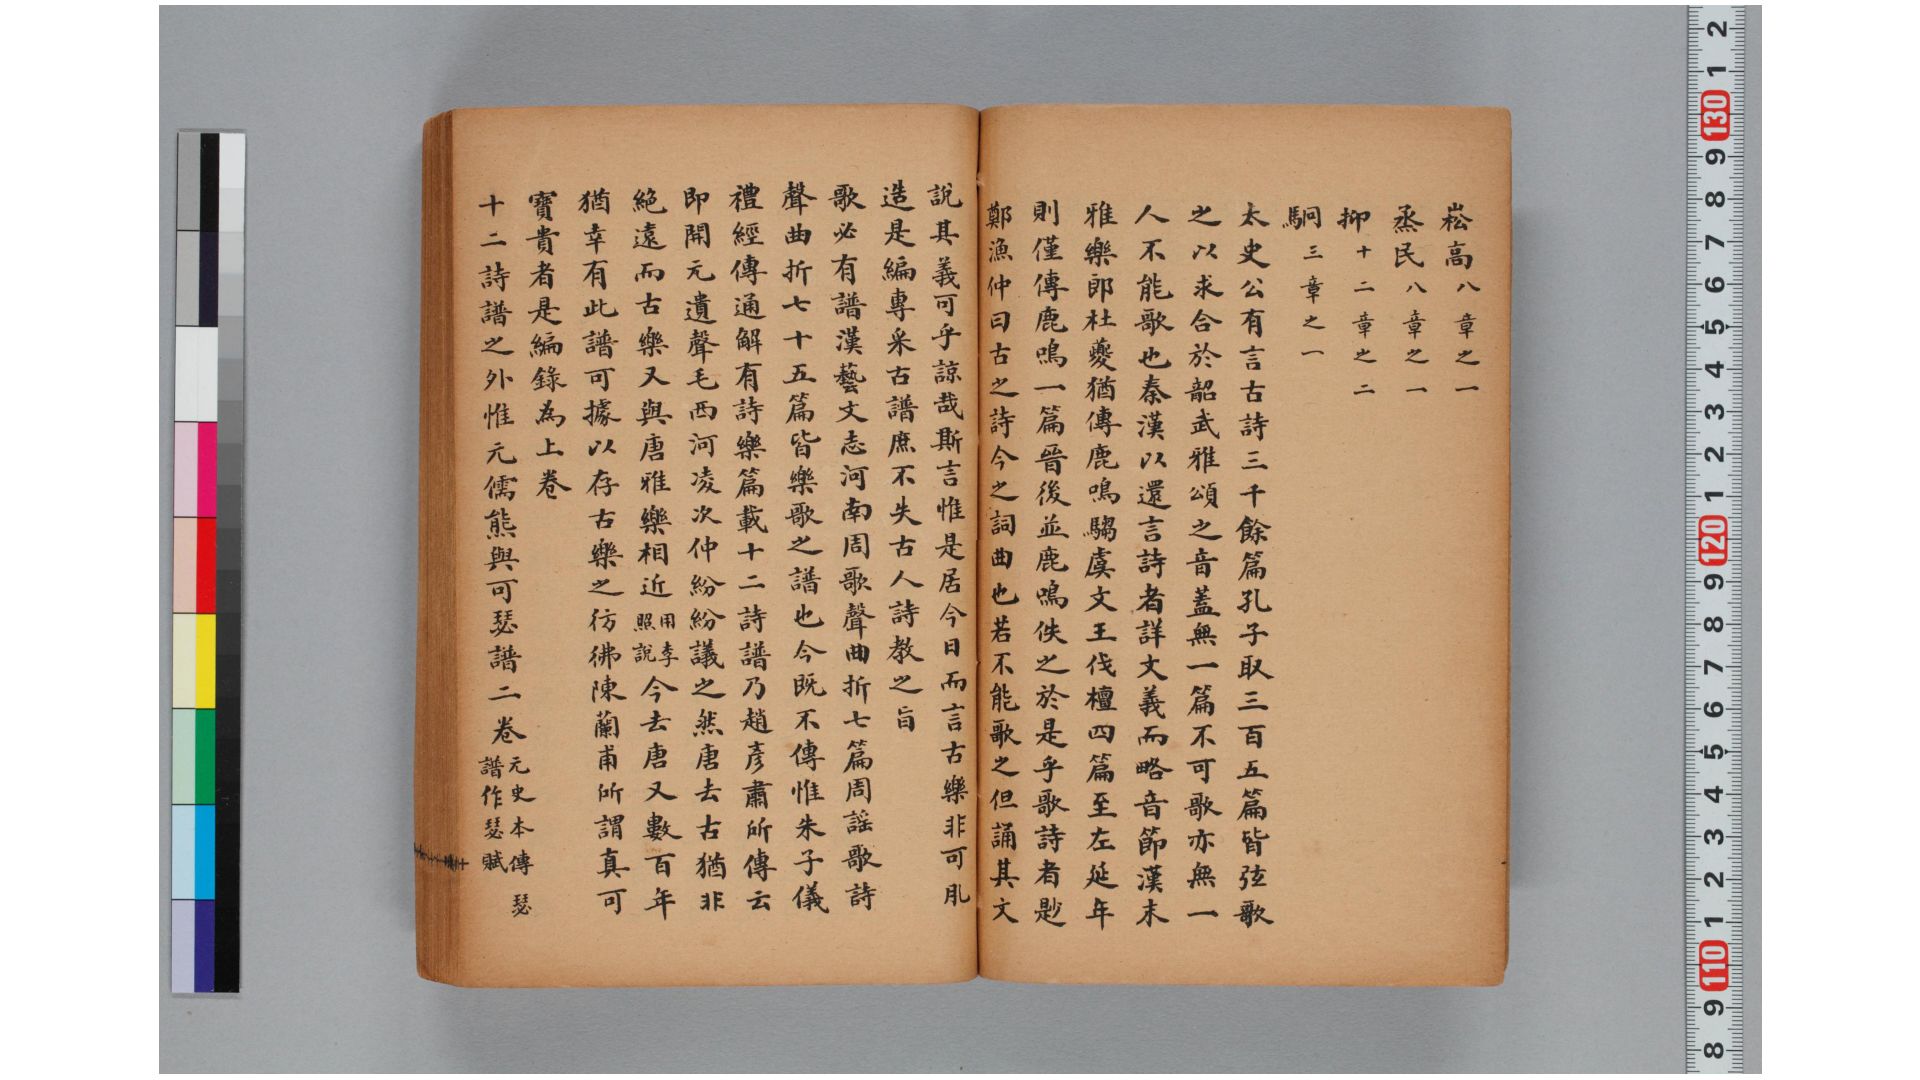 崧高八章之一
烝民八章之一
抑十二章之二
駉三章之一
太史公有言古詩三千餘篇孔子取三百五篇皆弦歌
之以求合於韶武雅頌之音蓋無一篇不可歌亦無一
人不能歌也秦漢以還言詩者詳文義而略音節漢末
雅樂郎杜夔猶傳鹿鳴騶虞文王伐檀四篇至左延年
則僅傳鹿鳴一篇晉後並鹿鳴佚之於是乎歌詩者尟
鄭漁仲曰古之詩今之詞曲也若不能歌之但誦其文
說其義可乎諒哉斯言惟是居今日而言古樂非可肊
造是編專采古譜庶不失古人詩教之旨
歌必有譜漢藝文志河南周歌聲曲折七篇周謠歌詩
聲曲折七十五篇皆樂歌之譜也今既不傳惟朱子儀
禮經傳通解有詩樂篇載十二詩譜乃趙彥肅所傳云
即開元遺聲毛西河凌次仲紛紛議之然唐去古猶非
絕遠而古樂又與唐雅樂相近用李照說今去唐又數百年
猶幸有此譜可據以存古樂之彷彿陳蘭甫所謂真可
寶貴者是編錄為上卷
十二詩譜之外惟元儒熊與可瑟譜二卷元史本傳瑟譜作瑟賦瑟
2
1
130
9
8
7
6
5
4
3
2
1
120
9
8
7
6
5
4
3
2
1
110
9
8